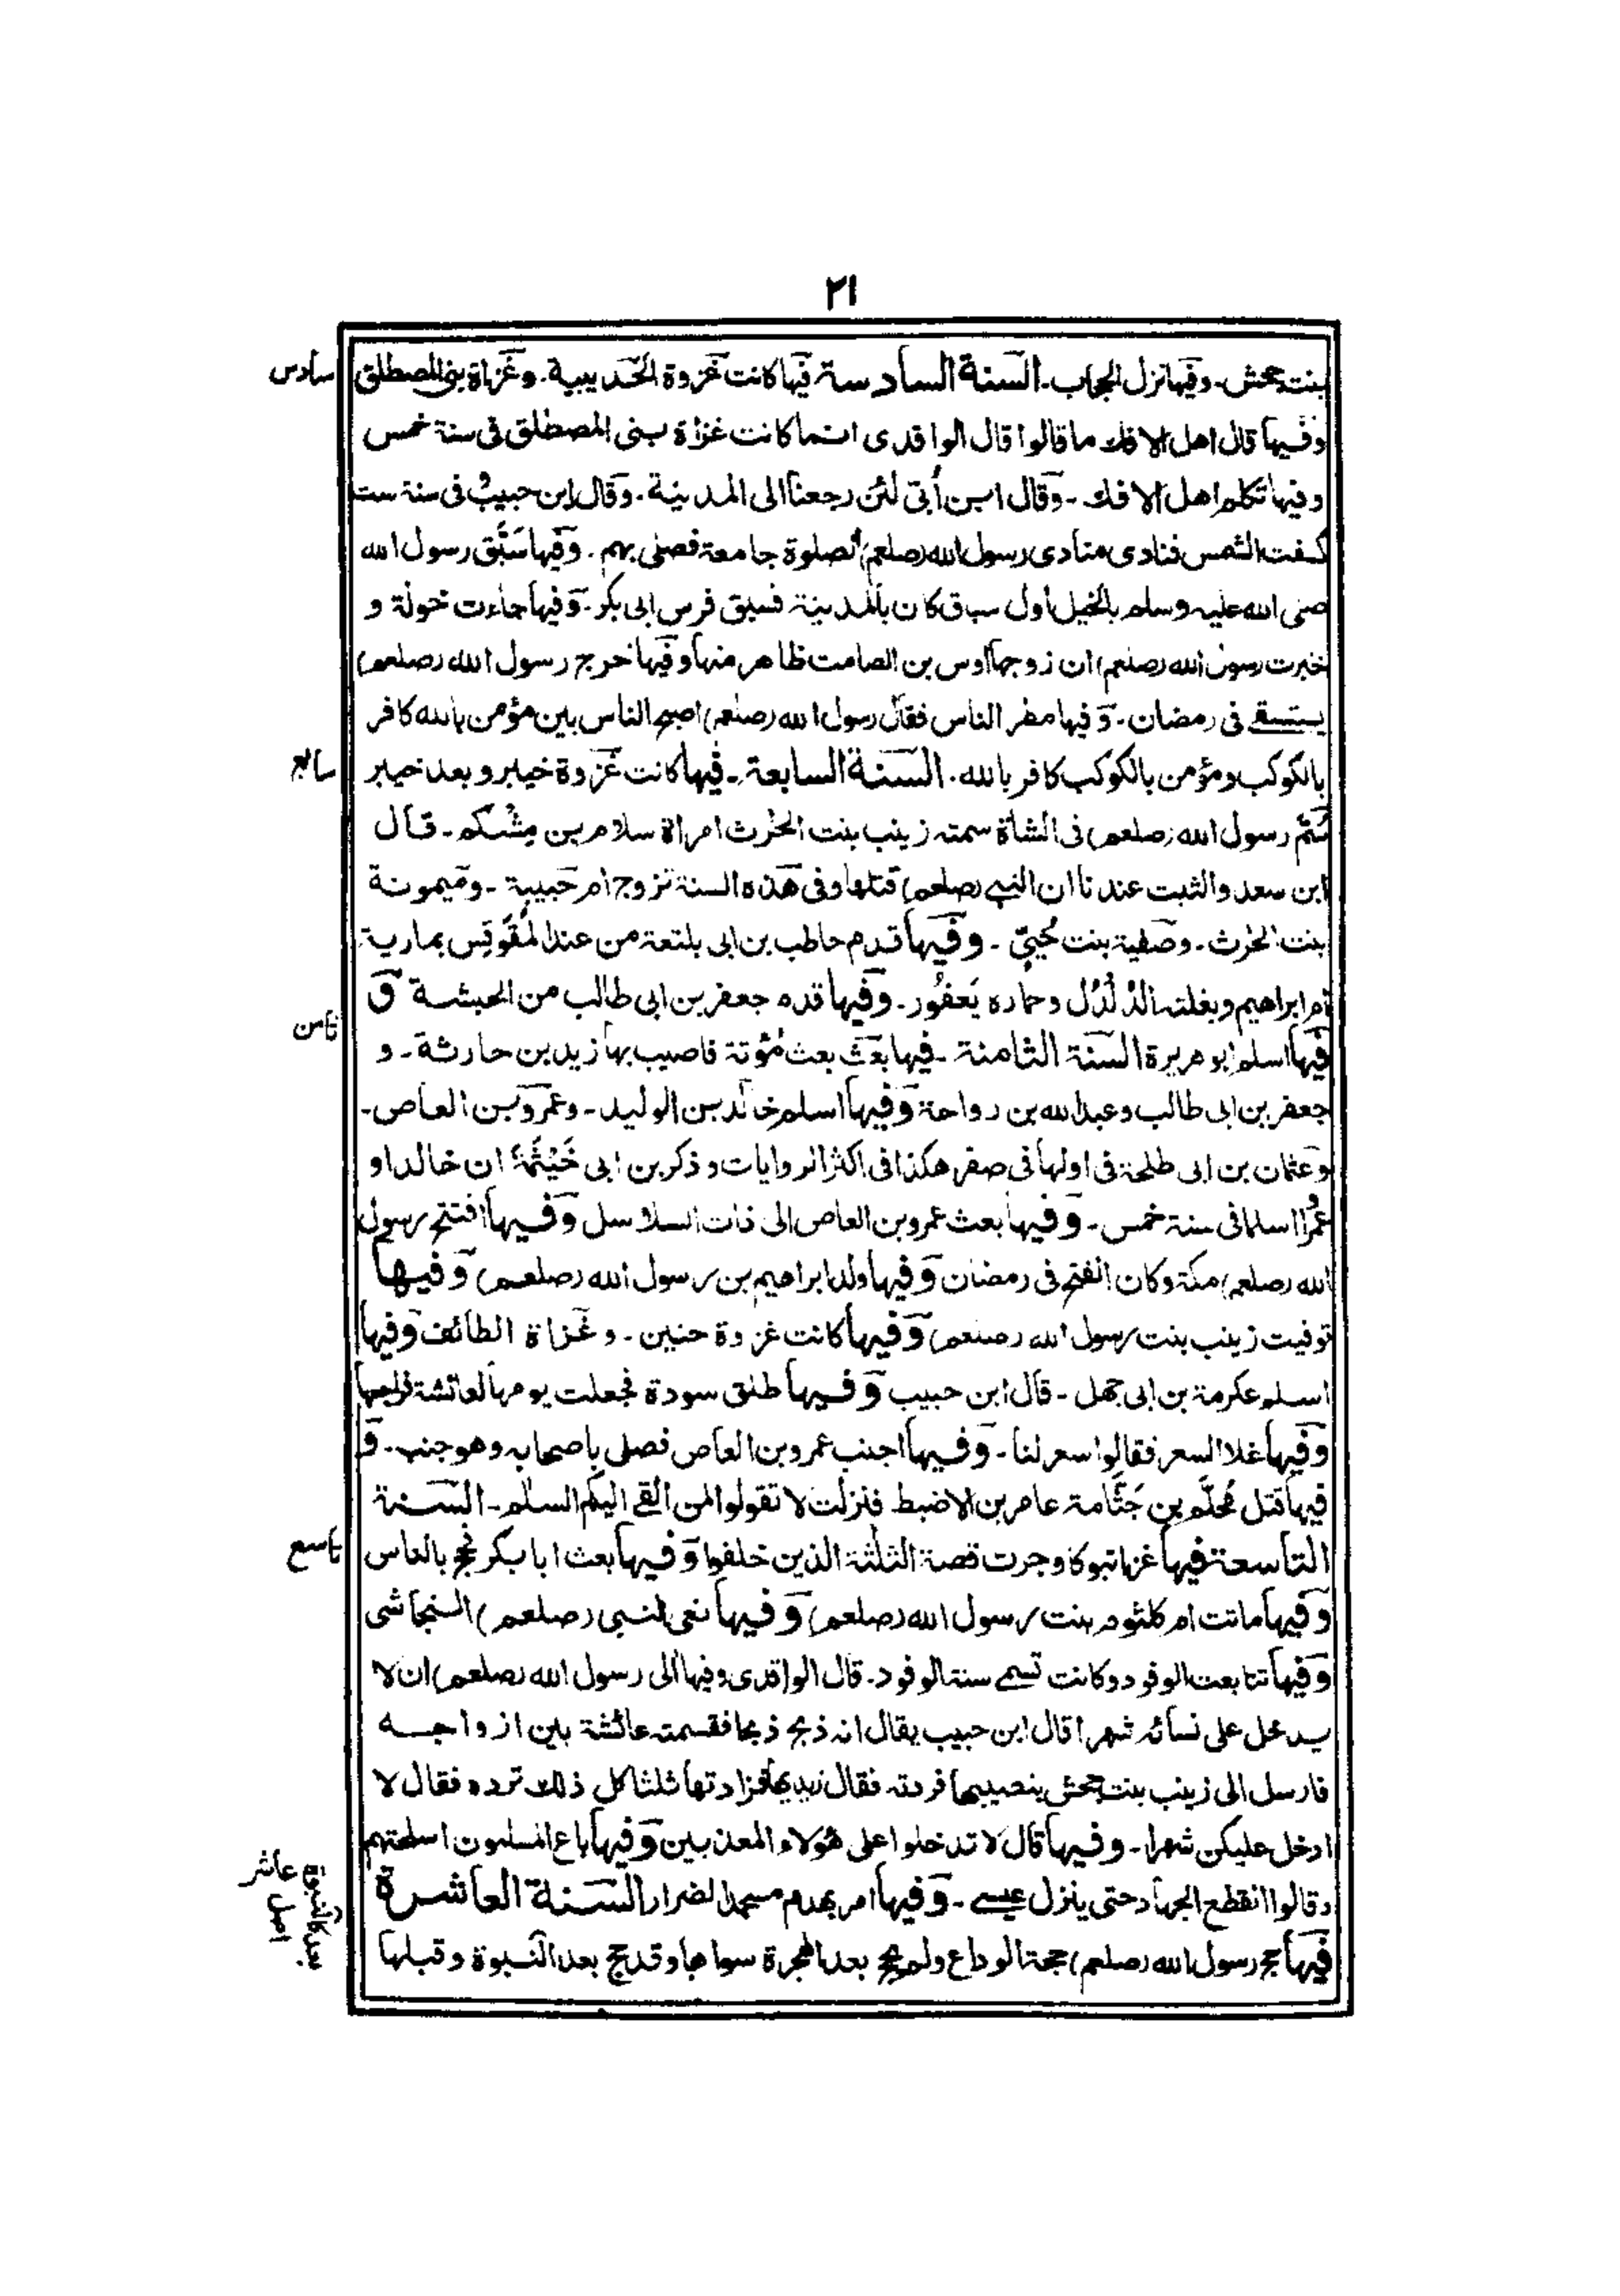 ٢١
بنت جحش۔ وفيها نزل الحجاب۔ السنة السادسة فيها كانت غزوة الحديبية۔ وغزاة بنى المصطلق
سادس
وفيها قال اهل الافك ما قالوا قال الواقدى انما كانت غزاة بنى المصطلق فى سنة خمس
وفيها تكلم اهل الافك ۔ وقال ابن أُبىّ لئن رجعنا الى المدينة۔ وقال ابن حبيب فى سنة ست
كسفت الشمس فنادى منادى رسول الله (صلعم) الصلوة جامعة فصلى بهم۔ وفيها سَبَّق رسول الله
صلى الله عليه وسلم بالخيل اول سباق كان بالمدينة فسبق فرس ابى بكر۔ وفيها جاءت خولة و
خبرت رسول الله (صلعم) ان زوجها اوس بن الصامت ظاهر منها وفيها خرج رسول الله (صلعم)
يستسقے فى رمضان۔ وفيها مطر الناس فقال رسول الله (صلعم) اصبح الناس بين مؤمن بالله كافر
بالكوكب ومؤمن بالكوكب كافر بالله۔ السنة السابعة۔ فيها كانت غزوة خيبر وبعد خيبر
سابع
سُمّ رسول الله (صلعم) فى الشاة سمته زينب بنت الحرث امراة سلام بن مِشْكم۔ قال
ابن سعد والثبت عندنا ان النبے (صلعم) قتلها وفى هذه السنة تزوج ام حبيبة۔ وميمونة
بنت الحرث۔ وصفية بنت حُيىّ۔ وفيها قدم حاطب بن ابى بلتعة من عند المُقَوقِس بمارية
ام ابراهيم وبغلته الدُلْدُل وحماره يَعفُور۔ وفيها قدم جعفر بن ابى طالب من الحبشة و
فيها اسلم ابو هريرة السنة الثامنة۔ فيها بعث بعث مُؤتة فاصيب بها زيد بن حارثة۔ و
ثامن
جعفر بن ابى طالب وعبد الله بن رواحة وفيها اسلم خالد بن الوليد۔ وعمرو بن العاص۔
وعثمان بن ابى طلحة فى اولها فى صفر هكذا فى اكثر الروايات وذكر بن ابى خَيْثَمَة ان خالدا و
عمرًا اسلما فى سنة خمس۔ وفيها بعث عمرو بن العاص الى ذات السلاسل وفيها افتتح رسول
الله (صلعم) مكة وكان الفتح فى رمضان وفيها ولد ابراهيم بن رسول الله (صلعم) وفيها
توفيت زينب بنت رسول الله (صلعم) وفيها كانت غزوة حنين۔ وغزاة الطائف وفيها
اسلم عكرمة بن ابى جهل۔ قال ابن حبيب وفيها طلق سودة فجعلت يومها لعائشة فراجعها
وفيها غلا السعر فقالوا سعر لنا۔ وفيها اجنب عمرو بن العاص فصلى باصحابه وهو جنب۔ و
فيها قتل مُحلّم بن جَثّامة عامر بن الاضبط فنزلت لا تقولوا لمن القے اليكم السلٰم۔ السنة
التاسعة فيها غزا تبوكا وجرت قصة الثلثة الذين خلفوا وفيها بعث ابا بكر فحج بالناس
تاسع
وفيها ماتت ام كلثوم بنت رسول الله (صلعم) وفيها نعى النبى (صلعم) النجاشى
وفيها تتابعت الوفود وكانت تسمے سنة الوفود۔ قال الواقدى وفيها الى رسول الله (صلعم) ان لا
يدخل على نسائه شهرا قال ابن حبيب يقال انه ذبح ذبحا فقسمته عائشة بين ازواجه
فارسل الى زينب بنت جحش بنصيبها فردته فقال زيديها فزادتها ثلثا كل ذلك ترده فقال لا
ادخل عليكن شهرا۔ وفيها قال لا تدخلوا على هؤلاء المعذبين وفيها باع المسلمون اسلحتهم
وقالوا انقطع الجهاد حتى ينزل عيسے۔ وفيها امر بهدم مسجد الضرار السنة العاشرة
عاشر
فيها حج رسول الله (صلعم) حجة الوداع ولم يحج بعد الهجرة سواها وقد حج بعد النبوة وقبلها